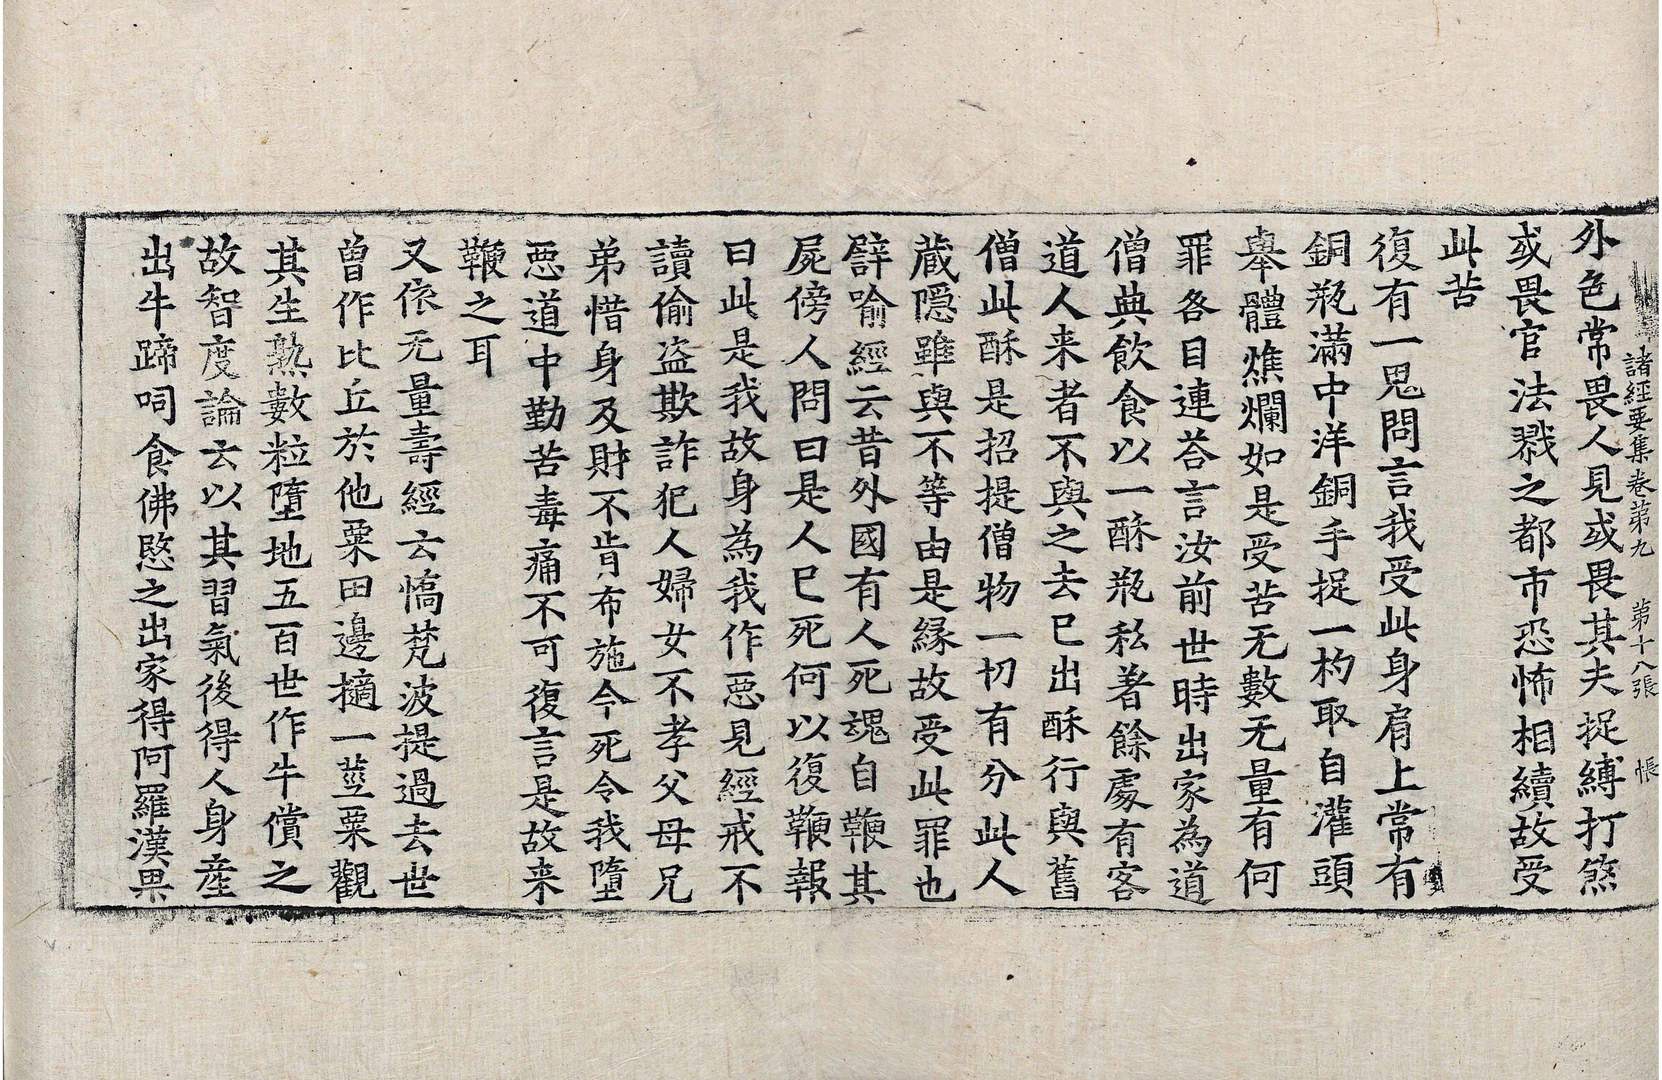 外色常畏人見或畏其夫捉縛打煞
諸經要集卷第九 第十八張 悵
或畏官法戮之都市恐怖相續故受
此苦
復有一鬼問言我受此身肩上常有
銅瓶滿中洋銅手捉一杓取自灌頭
舉體燋爛如是受苦无數无量有何
罪各目連荅言汝前世時出家為道
僧典飲食以一酥瓶私著餘處有客
道人来者不與之去巳出酥行與舊
僧此酥是招提僧物一切有分此人
蔵隠雖與不等由是縁故受此罪也
譬喻經云昔外國有人死魂自鞭其
屍傍人問曰是人巳死何以復鞭報
曰此是我故身為我作惡見經戒不
讀偷盜欺詐犯人婦女不孝父母兄
弟惜身及財不肯布施今死令我墮
惡道中勤苦毒痛不可復言是故来
鞭之耳
又依无量壽經云憍梵波提過去世
曽作比丘於他粟田邊擿一莖粟觀
其生熟數粒墮地五百世作牛償之
故智度論云以其習氣後得人身產
出牛蹄呞食佛愍之出家得阿羅漢果